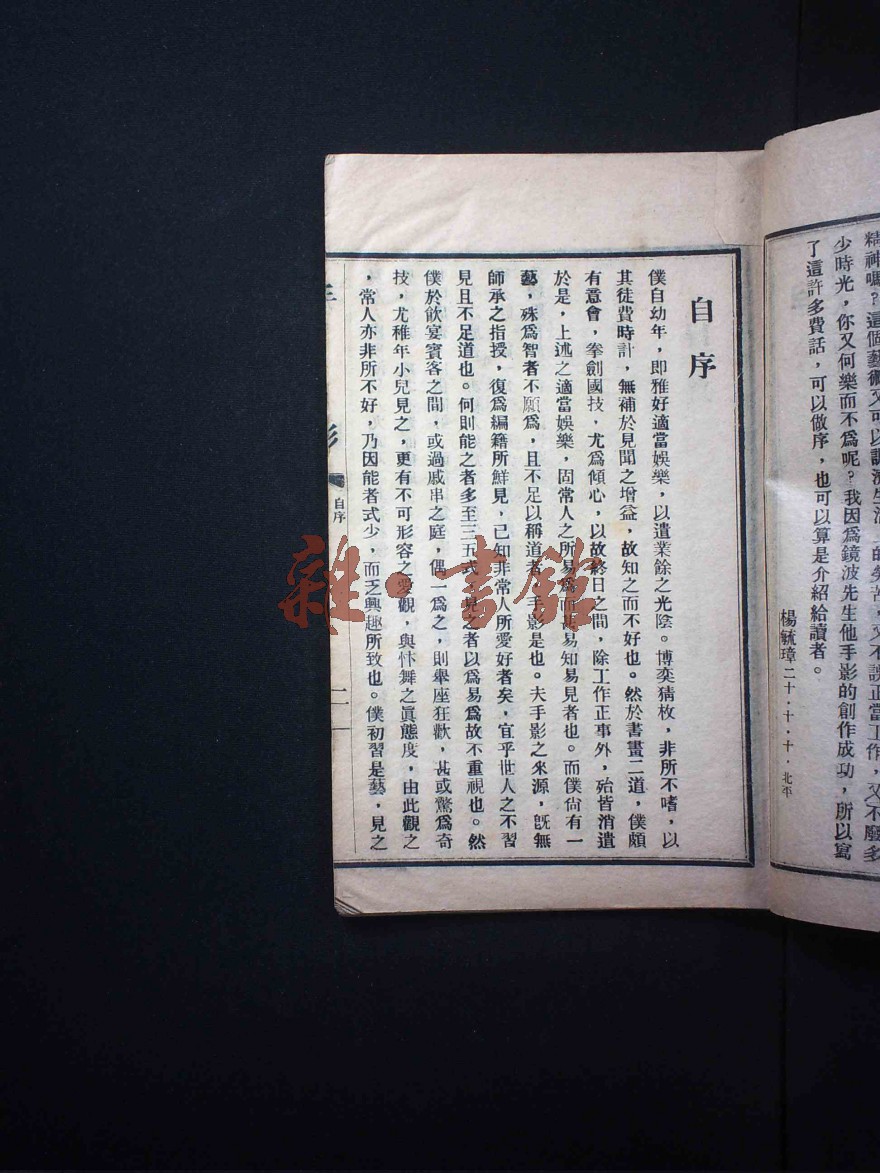 精神嗎?這個藝術又可以調濟生活上的勞苦,又不誤正當工作,又不廢多
少時光,你又何樂而不爲呢?我因爲鏡波先生他手影的創作成功,所以寫
了這許多費話,可以做序,也可以算是介紹給讀者。
楊毓璋二十·十·十·北平
自序
僕自幼年,即雅好適當娛樂,以遣業餘之光陰。博奕猜枚,非所不嗜,以
其徒費時計,無補於見聞之增益,故知之而不好也。然於書畫二道,僕頗
有意會,拳劍國技,尤爲傾心,以故終日之間,除工作正事外,殆皆消遣
於是,上述之適當娛樂,固常人之所易爲而易知易見者也。而僕尙有一
藝,殊爲智者不願爲,且不足以稱道者,手影是也。夫手影之來源,旣無
師承之指授,復爲編籍所鮮見,已知非常人所愛好者矣,宜乎世人之不習
見且不足道也。何則能之者多至三五式,見之者以爲易爲故不重視也。然
僕於飮宴賓客之間,或過戚串之庭,偶一爲之,則舉座狂歡,甚或驚爲奇
技,尤稚年小兒見之,更有不可形容之愛觀,與忭舞之眞態度,由此觀之
,常人亦非所不好,乃因能者式少,而乏興趣所致也。僕初習是藝,見之
手影
自序
二
雜·書館